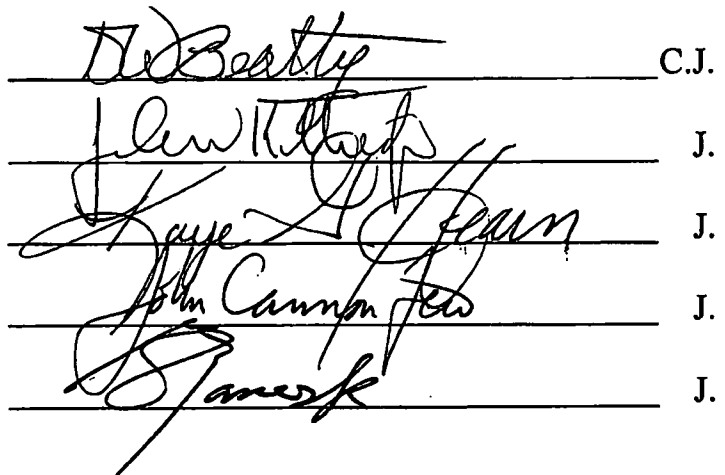 DW Beatty C.J.
John J.
Kaye G Hearn J.
John Cannon Few J.
James J.